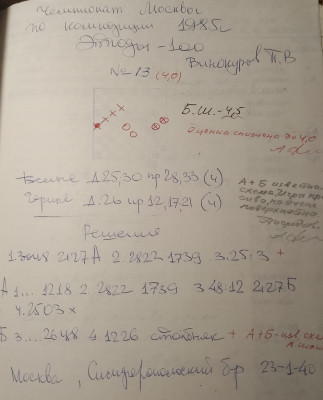 Чемпионат Москвы
по композиции 1985г
Этюды-100
Винокуров П.В
№13 (4,0)
Б.Ш.-4,5
Оценка снижена до 4,0
Белые Д25,30 пр 28,33 (4)
Черные Д.26 пр 12,17,21 (4)
А+Б известная
схема, игра кра-
сиво, но очень
Решение
2127А 2.2822 1739 3.25:3 +
А1... 1218 2.2822 1739 3 48:12 2127Б
4.2503 х
Б 3.... 2648 4 1226 столбняк + А+Б-изв схе
Москва, Симферопольский б-р 23-1-40